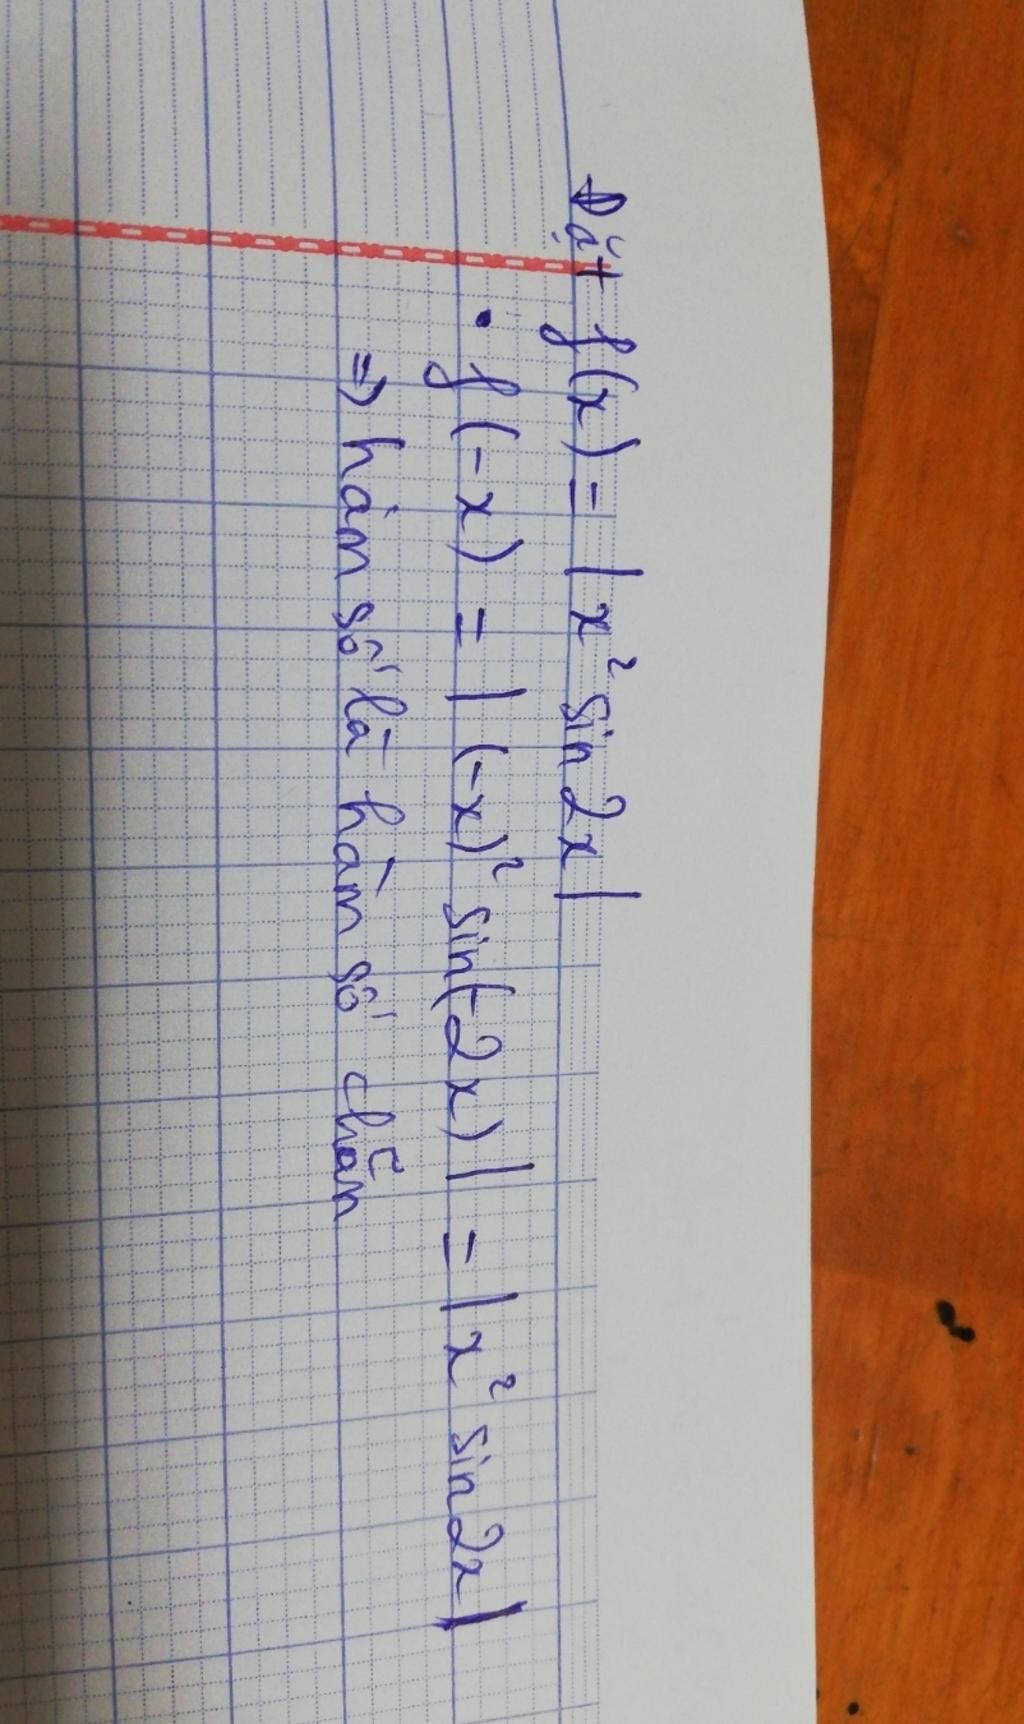 Đặt f(x) = | x² sin 2x |
• f(-x) = | (-x)² sin(-2x) | = | x² sin 2x |
=> hàm số là hàm số chẵn